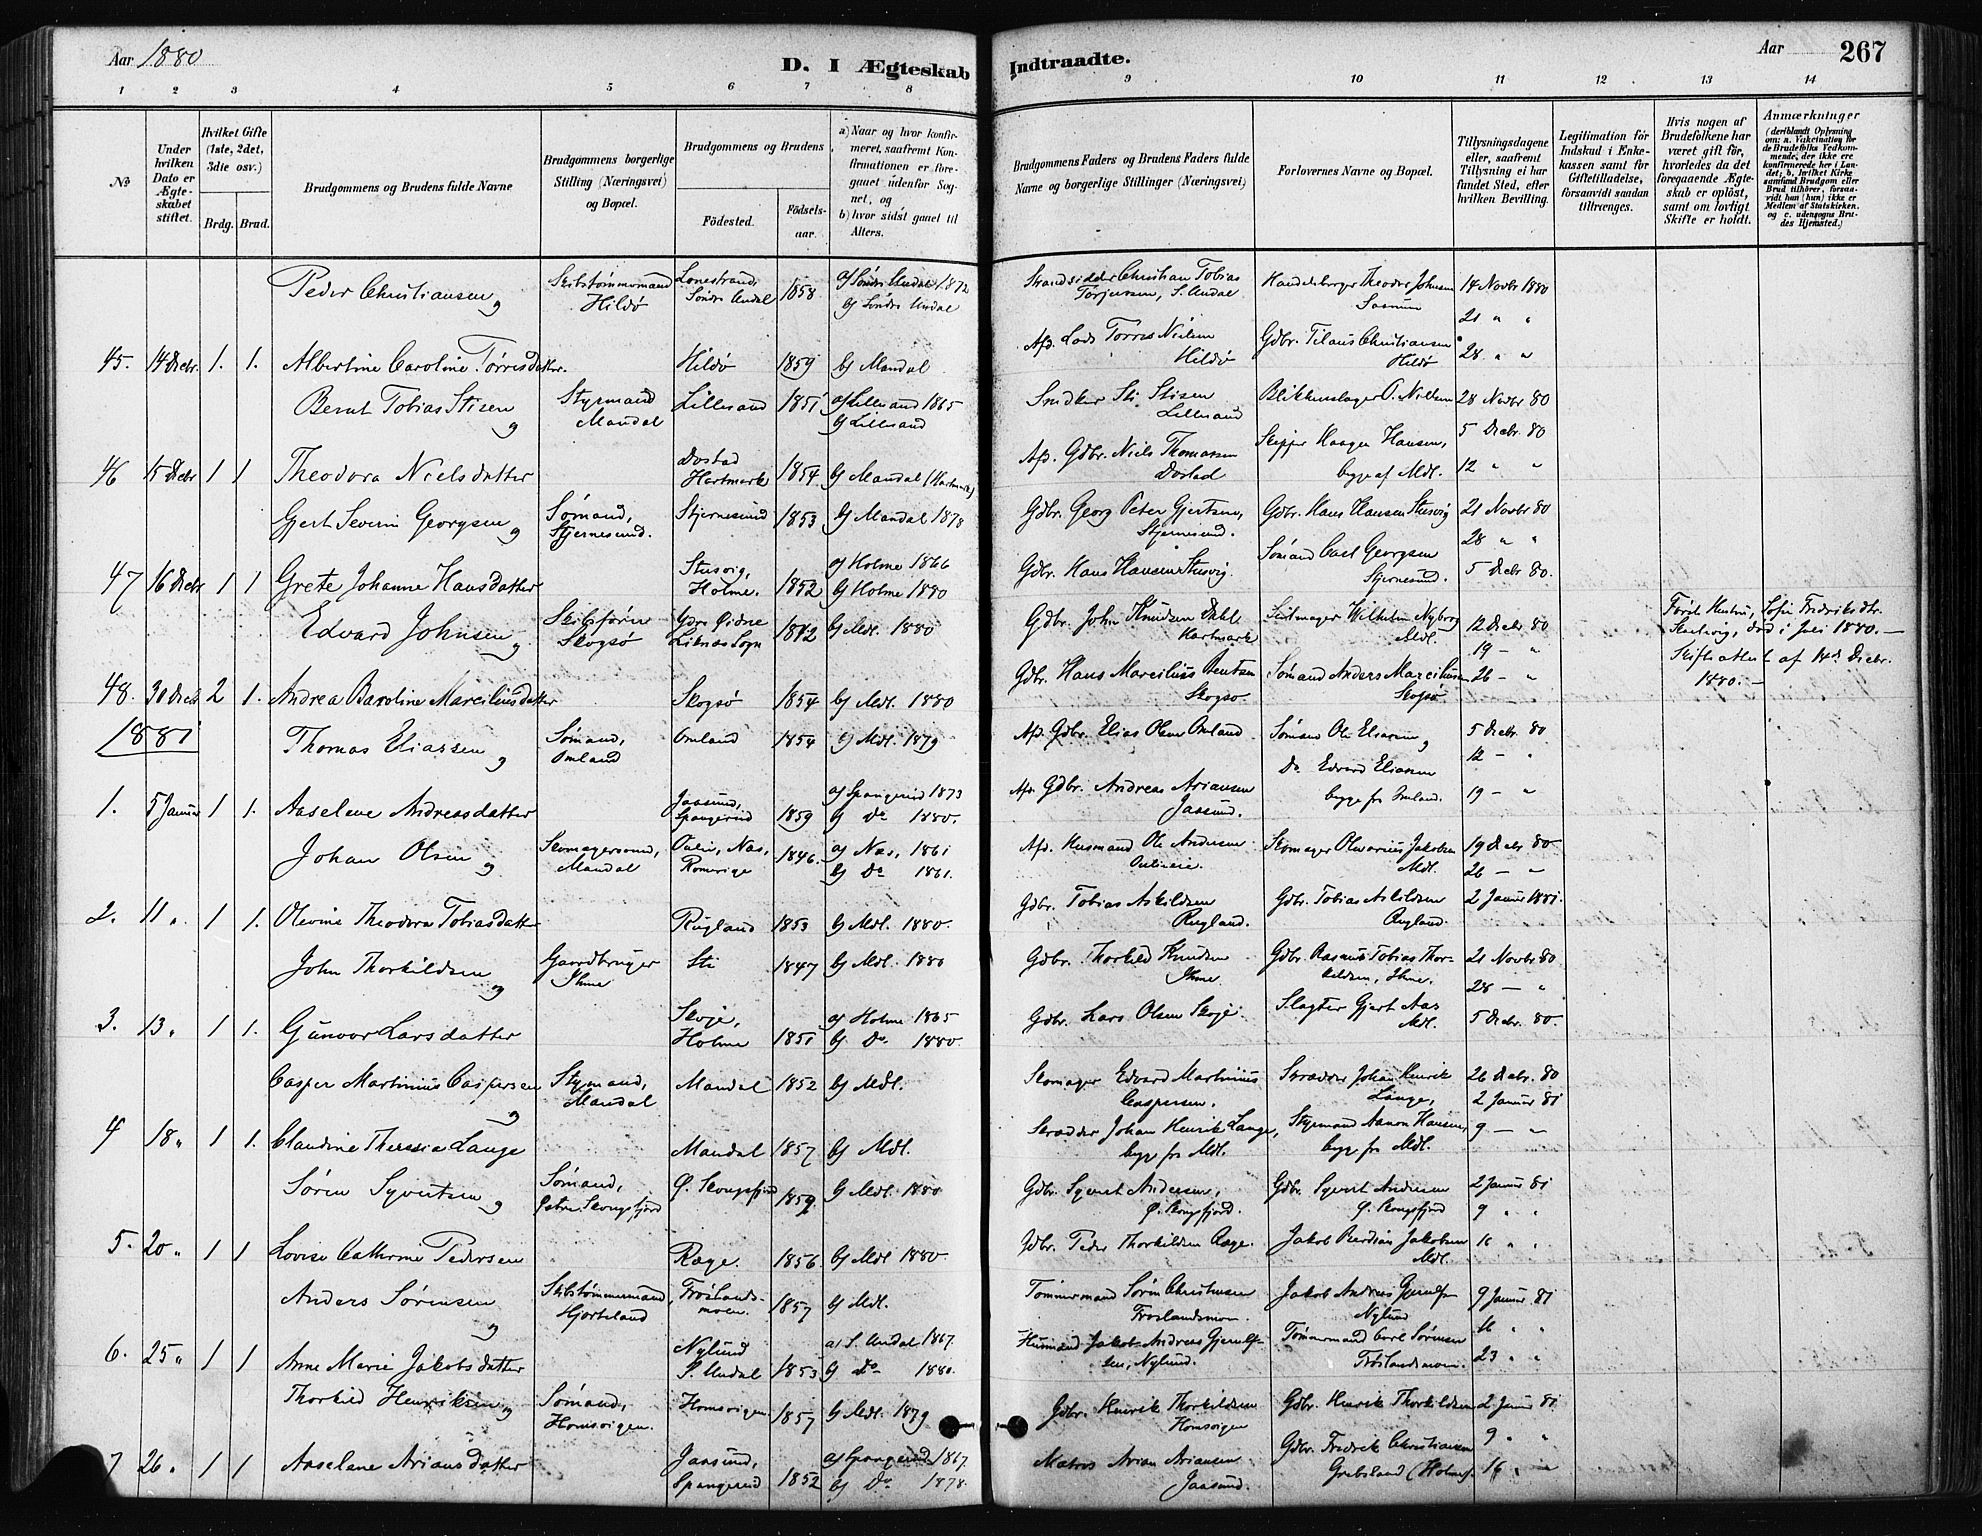 Aar 1880
D. I Ægteskab Indtraadte.
Aar
267
1 2 3 4 5 6 7 8 9 10 11 12 13 14
No
Under hvilken Dato er Ægteskabet stiftet.
Hvilket Gifte (1ste, 2det, 3die osv.)
Brdg. Brud.
Brudgommens og Brudens fulde Navne
Brudgommens borgerlige Stilling (Næringsvei) og Bopæl.
Brudgommens og Brudens
Födested.
Födselsaar.
a) Naar og hvor konfirmeret, saafremt Konfirmationen er foregaaet udenfor Sognet, og
b) hvor sidst gaaet til Alters.
Brudgommens Faders og Brudens Faders fulde Navne og borgerlige Stillinger (Næringsvei)
Forlovernes Navne og Bopæl.
Tillysningsdagene eller, saafremt Tillysning ei har fundet Sted, efter hvilken Bevilling.
Legitimation för Indskud i Enkekassen samt för Giftetilladelse, forsaavidt saadan tiltrænges.
Hvis nogen af Brudefolkene har været gift för, hvorledes da det foregaaende Ægteskab er oplöst, samt om lovligt Skifte er holdt.
Anmærkninger
(deriblandt Oplysning om: a. Vakcination for de Brudefolks Vedkommende, der ikke ere konfirmerede her i Landet; b. hvilket Kirkesamfund Brudgom eller Brud tilhörer, forsaavidt han (hun) ikke er Medlem af Statskirken, og c. udensogns Brudes Hjemsted.)
Peder Christiansen og Skibstømmermand Hildø Lonestrand, Söndr Undal 1858 a) Söndr Undal 1872 b) Söndr Undal Strandsidder Christian Tobias Torjussen, S. Undal Handelsborger Theodor Johnsen 14 Novbr 1880
21 " "
45. 14 Decbr. 1. 1. Albertine Caroline Tørresdatter. Hildø 1859 b) Mandal Afd. Lods Tørres Nielsen Hildø Gdbr. Tilaus Christiansen Hildø 28 " "
Bernt Tobias Stisen og Styrmand Mandal Lillesand 1851 a) Lillesand 1865 b) Lillesand Snedker Sti Stisen Lillesand Blikkenslager O. Nielsen 28 Novbr 80
5 Decbr. 80
46 15 Decbr 1 1 Theodora Nielsdatter Dostad Hartmark 1854 b) Mandal (Hartmark) Afd. Gdbr. Niels Thomassen Dostad Skipper Kaagen Hansen, begge af Mdl. 12 " "
Gjert Severin Georgsen og Sømand, Stjernesund. Stjernesund 1853 b) Mandal 1878 Gdbr. Georg Peter Gjertsen, Stjernesund. Gdbr. Hans Hansen Stusvig 21 Novbr 80
28 " "
47 16 Decbr 1 1 Grete Johanne Hansdatter Stusvig, Holme. 1852 a) Holme 1866 b) Holme 1880 Gdbr. Hans Hansen Stusvig. Sømand Carl Georgsen Stjernesund. 5 Decbr 80.
Edvard Johnsen og Skibsfører Skogsø Ydre Øidne Liknes Sogn 1842 b) Mdl. 1880 Gdbr. John Knudsen Hartmark Seilmager Wilhelm Nyborg Mdl. 12 Decbr 80
19 - "
Først Hustru, Sofie Fredriksdtr. død i Juli 1880. - Skifteattest af 14d Decbr. 1880. -
48. 30 Decb 2 1. Andrea Caroline Marciliusdatter Skogsø 1854 b) Mdl. 1880 Gdbr. Hans Marcilius Bentsen Skogsø Sømand Anders Marciliusen Skogsø 26 - "
1881
Thomas Eliassen og Sømand, Omland Omland 1854 b) Mdl. 1879 Afd. Gdbr. Elias Olsen Omland Sømand Ole Eliassen og 5 Decbr 80
12 - "
1. 5 Januar 1 1. Aaselene Andreasdatter Jaasund, Spangereid 1859 a) Spangereid 1873 b) Do 1880. Afd. Gdbr. Andreas Ariansen Jaasund. Do Edvard Eliassen begge fra Omland. 19 - "
Johan Olsen og Skomagersvend, Mandal Oulie, Næs, Romerige 1846. a) Næs, 1861 b) Do 1861. Afd. Husmand Ole Andersen Skomager Olvarius Jakobsen Mdl. 19 Decbr 80
26 - "
2. 11 " 1 1. Olevine Theodora Tobiasdatter Rugland 1853 b) Mdl. 1880. Gdbr. Tobias Askildsen Rugland. Gdbr. Tobias Askildsen Rugland. 2 Januar 1881.
John Thorkildsen og Gaardbruger Ihme Sti 1847 b) Mdl. 1880 Gdbr. Thorkild Knudsen Ihme. Gdbr. Rasmus Tobias Thorkildsen, Ihme. 21 Novbr 80
28 - "
3. 13 " 1 1. Gunvor Larsdatter Skoje, Holme 1851 a) Holme 1865 b) Do 1880. Gdbr. Lars Olsen Skoje. Slagter Gjert Aas Mdl. 5 Decbr. 80.
Casper Martinius Caspersen og Styrmand, Mandal Mandal 1852 b) Mdl. Skomager Edvard Martinius Caspersen. Skrædder Johan Henrik Lange, 26 Decbr. 80
2 Januar 81
4 18 " 1 1. Claudine Theresia Lange Mandal 1857 b) Mdl. Skrædder Johan Henrik Lange, begge fra Mdl. Styrmand Aanon Hansen, begge fra Mdl. 9 - "
Søren Syvertsen og Sømand, Østre Skongsfjord Ø. Skongsfjord 1859. b) Mdl. 1880 Gdbr. Syvert Andersen, Ø. Skongsfjord. Gdbr. Syvert Andersen Ø. Skongsfjord 2 Januar 81
9 " "
5. 20 " 1 1 Lovise Cathrine Pedersen Røge. 1856 b) Mdl 1880. Gdbr. Peder Thorkildsen Røge. Jakob Berdius Jakobsen Mdl. 16 " "
Anders Sørensen og Skibstømmermand, Hjorteland Frøslandsmoen. 1857 b) Mdl. Tømmermand Søren Christensen Frøslandsmoen. Jakob Andreas Gjerulfsen Nylund 9 Januar 81
16 " "
6. 25 " 1 1 Anne Marie Jakobsdatter Nylund S. Undal 1853 a) S. Undal 1867 b) Do 1880. Husmand Jakob Andreas Gjerulfsen, Nylund. Tømmermand Carl Sørensen Frøslandsmoen. 23 " "
Thorkild Henriksen og Sømand, Homsvigen. Homsvigen 1857 b) Mdl. 1879 Gdbr. Henrik Thorkildsen Homsvigen Gdbr. Henrik Thorkildsen 2 Januar 81
9 " "
7 26 " 1 1 Aaselene Ariansdatter Jaasund, Spangereid 1852 a) Spangereid 1867 b) Do 1878. Matros Arian Ariansen Jaasund. Gdbr. Fredrik Christiansen Grebsland (Holme). 16 " "